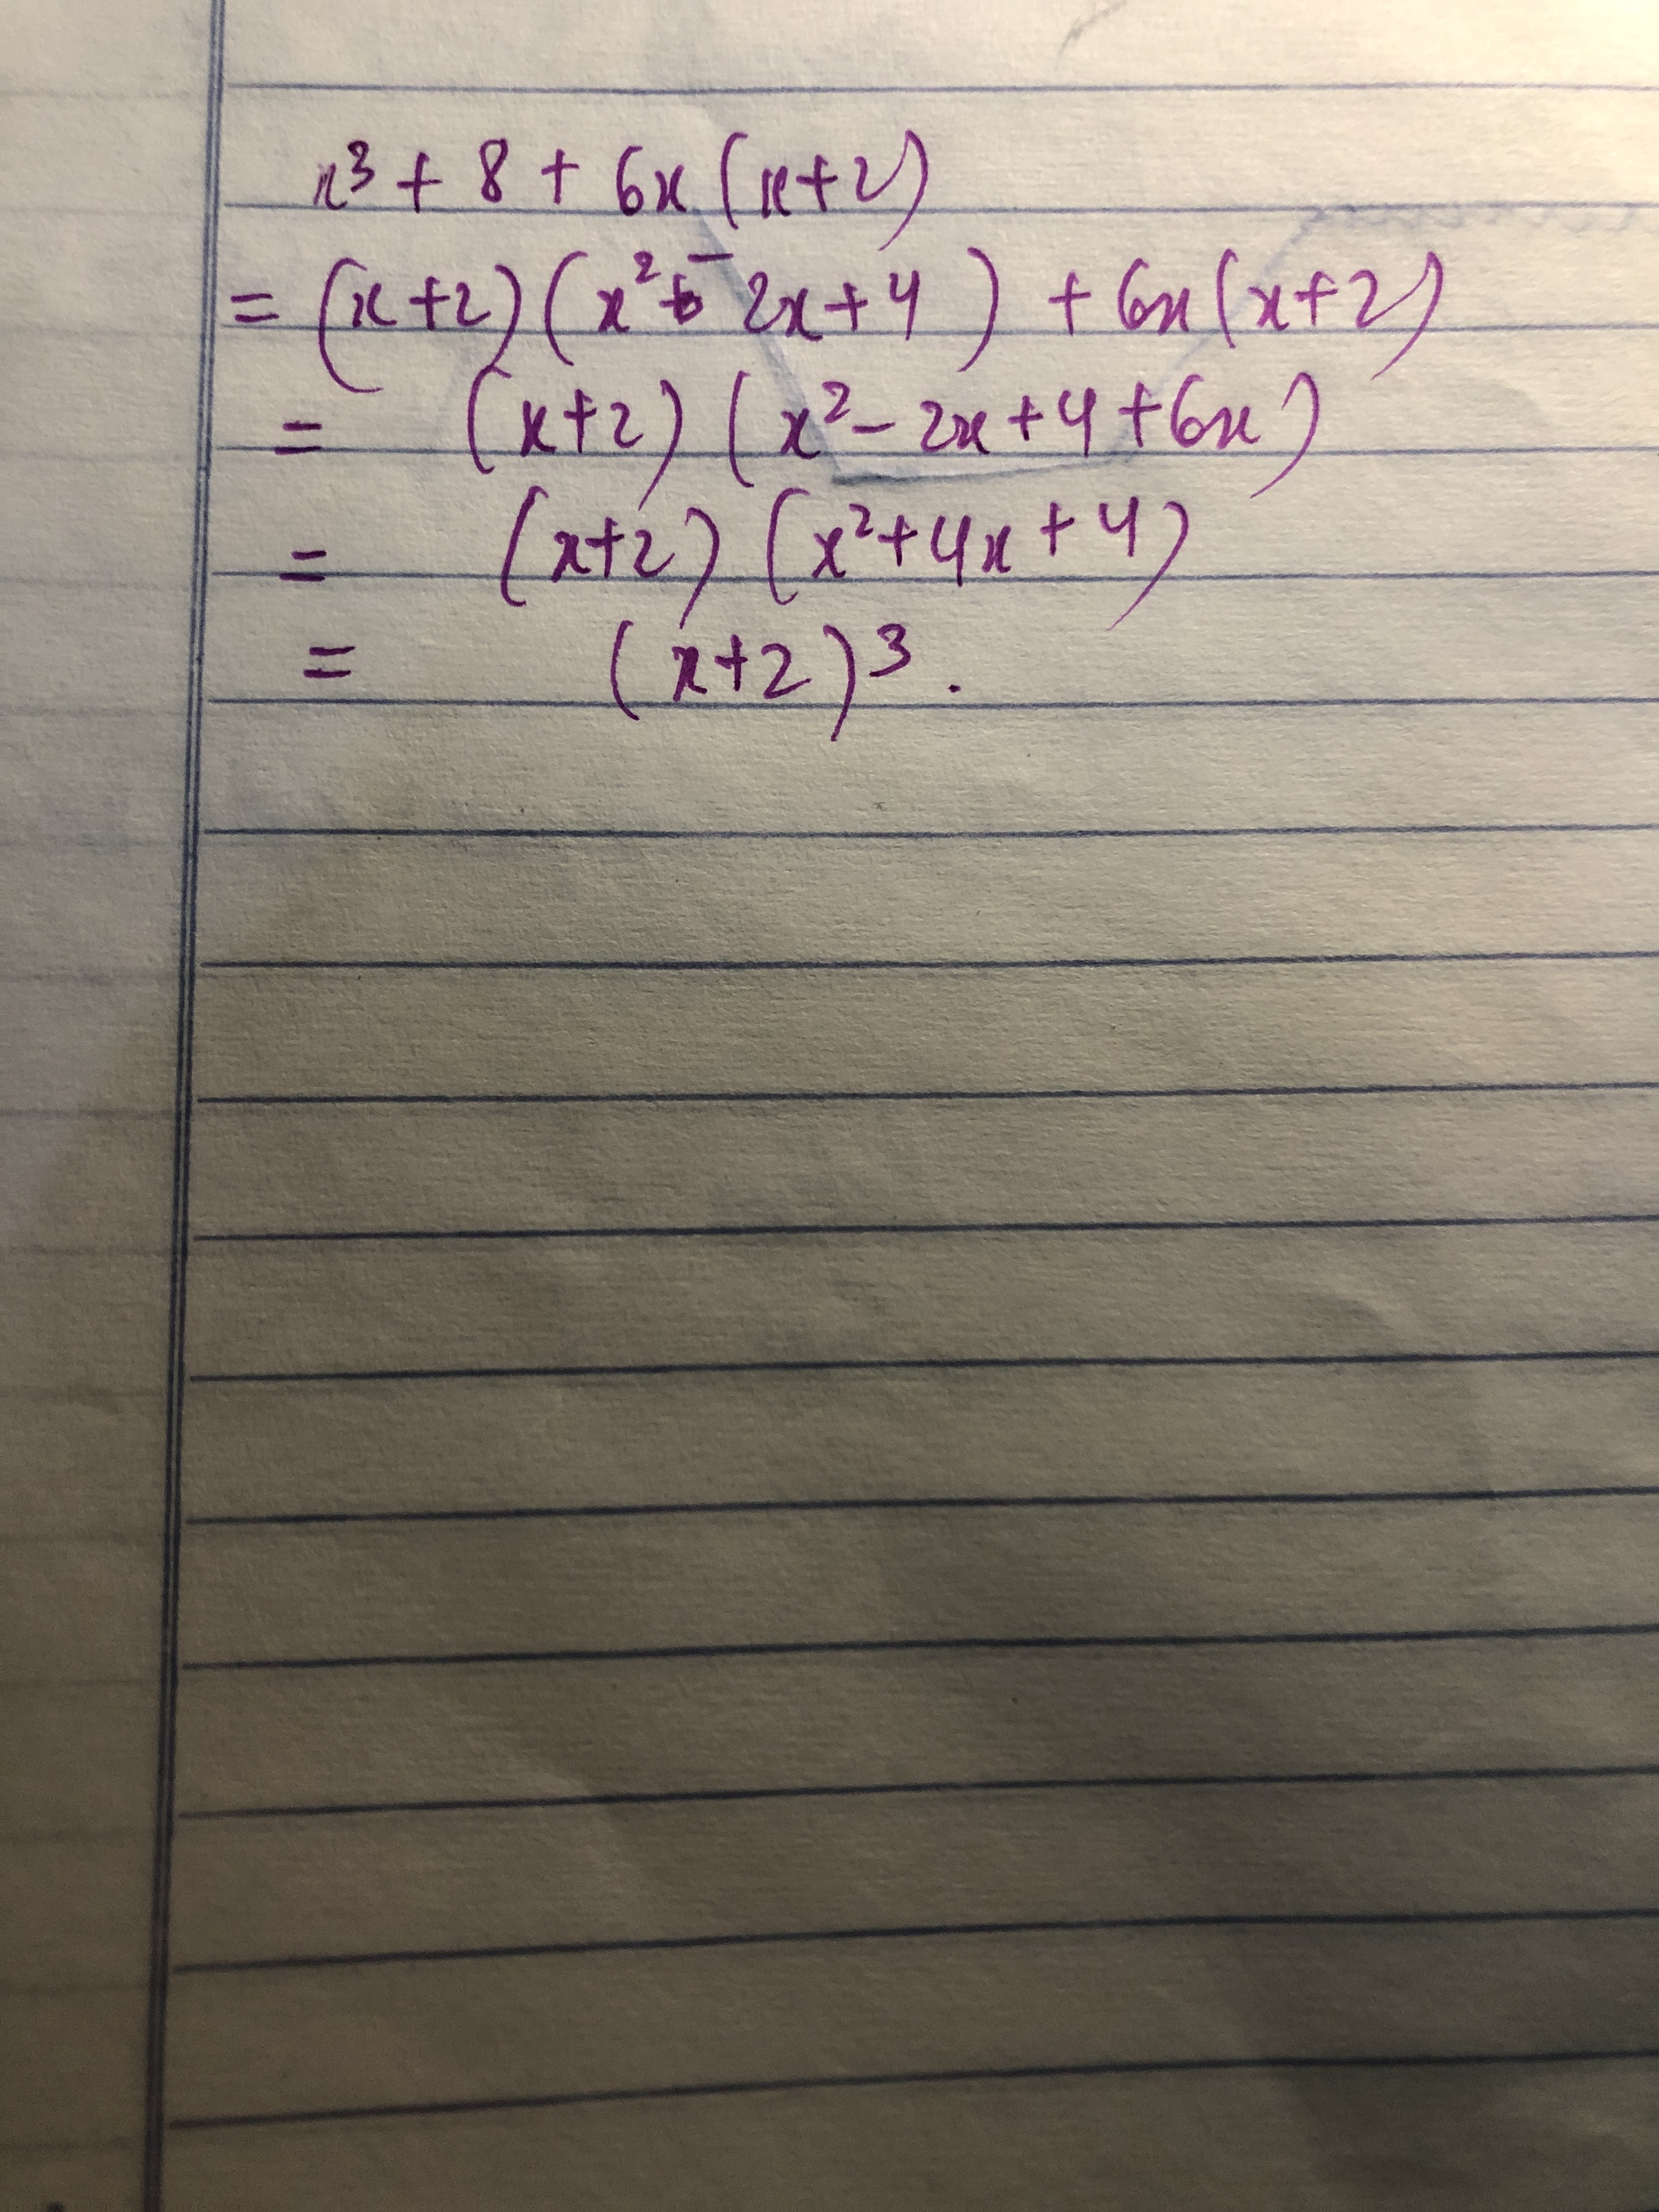 x³ + 8 + 6x (x+2)
= (x+2) (x² - 2x + 4) + 6x (x+2)
= (x+2) (x² - 2x + 4 + 6x)
= (x+2) (x² + 4x + 4)
= (x+2)³.